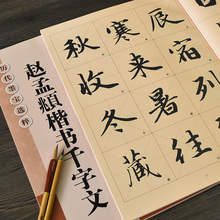 历代墨宝选粹
赵孟頫楷书千字文
辰宿列往
寒来暑
秋收冬藏